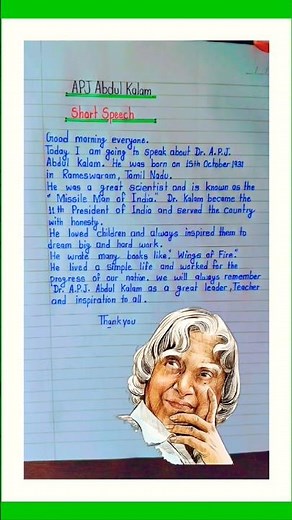 APJ Abdul Kalam
Short Speech
Good morning everyone.
Today I am going to speak about Dr. A.P.J.
Abdul Kalam. He was born on 15th October 1931
in Rameswaram, Tamil Nadu.
He was a great scientist and is known as the
"Missile Man of India." Dr. Kalam became the
11th President of India and served the Country
with honesty.
He loved children and always inspired them to
dream big and hard work.
He wrote many books like." Wings of Fire."
He lived a simple life and worked for the
progress of our nation. we will always remember
"Dr. A.P.J. Abdul Kalam as a great leader, Teacher
and inspiration to all.
Thankyou